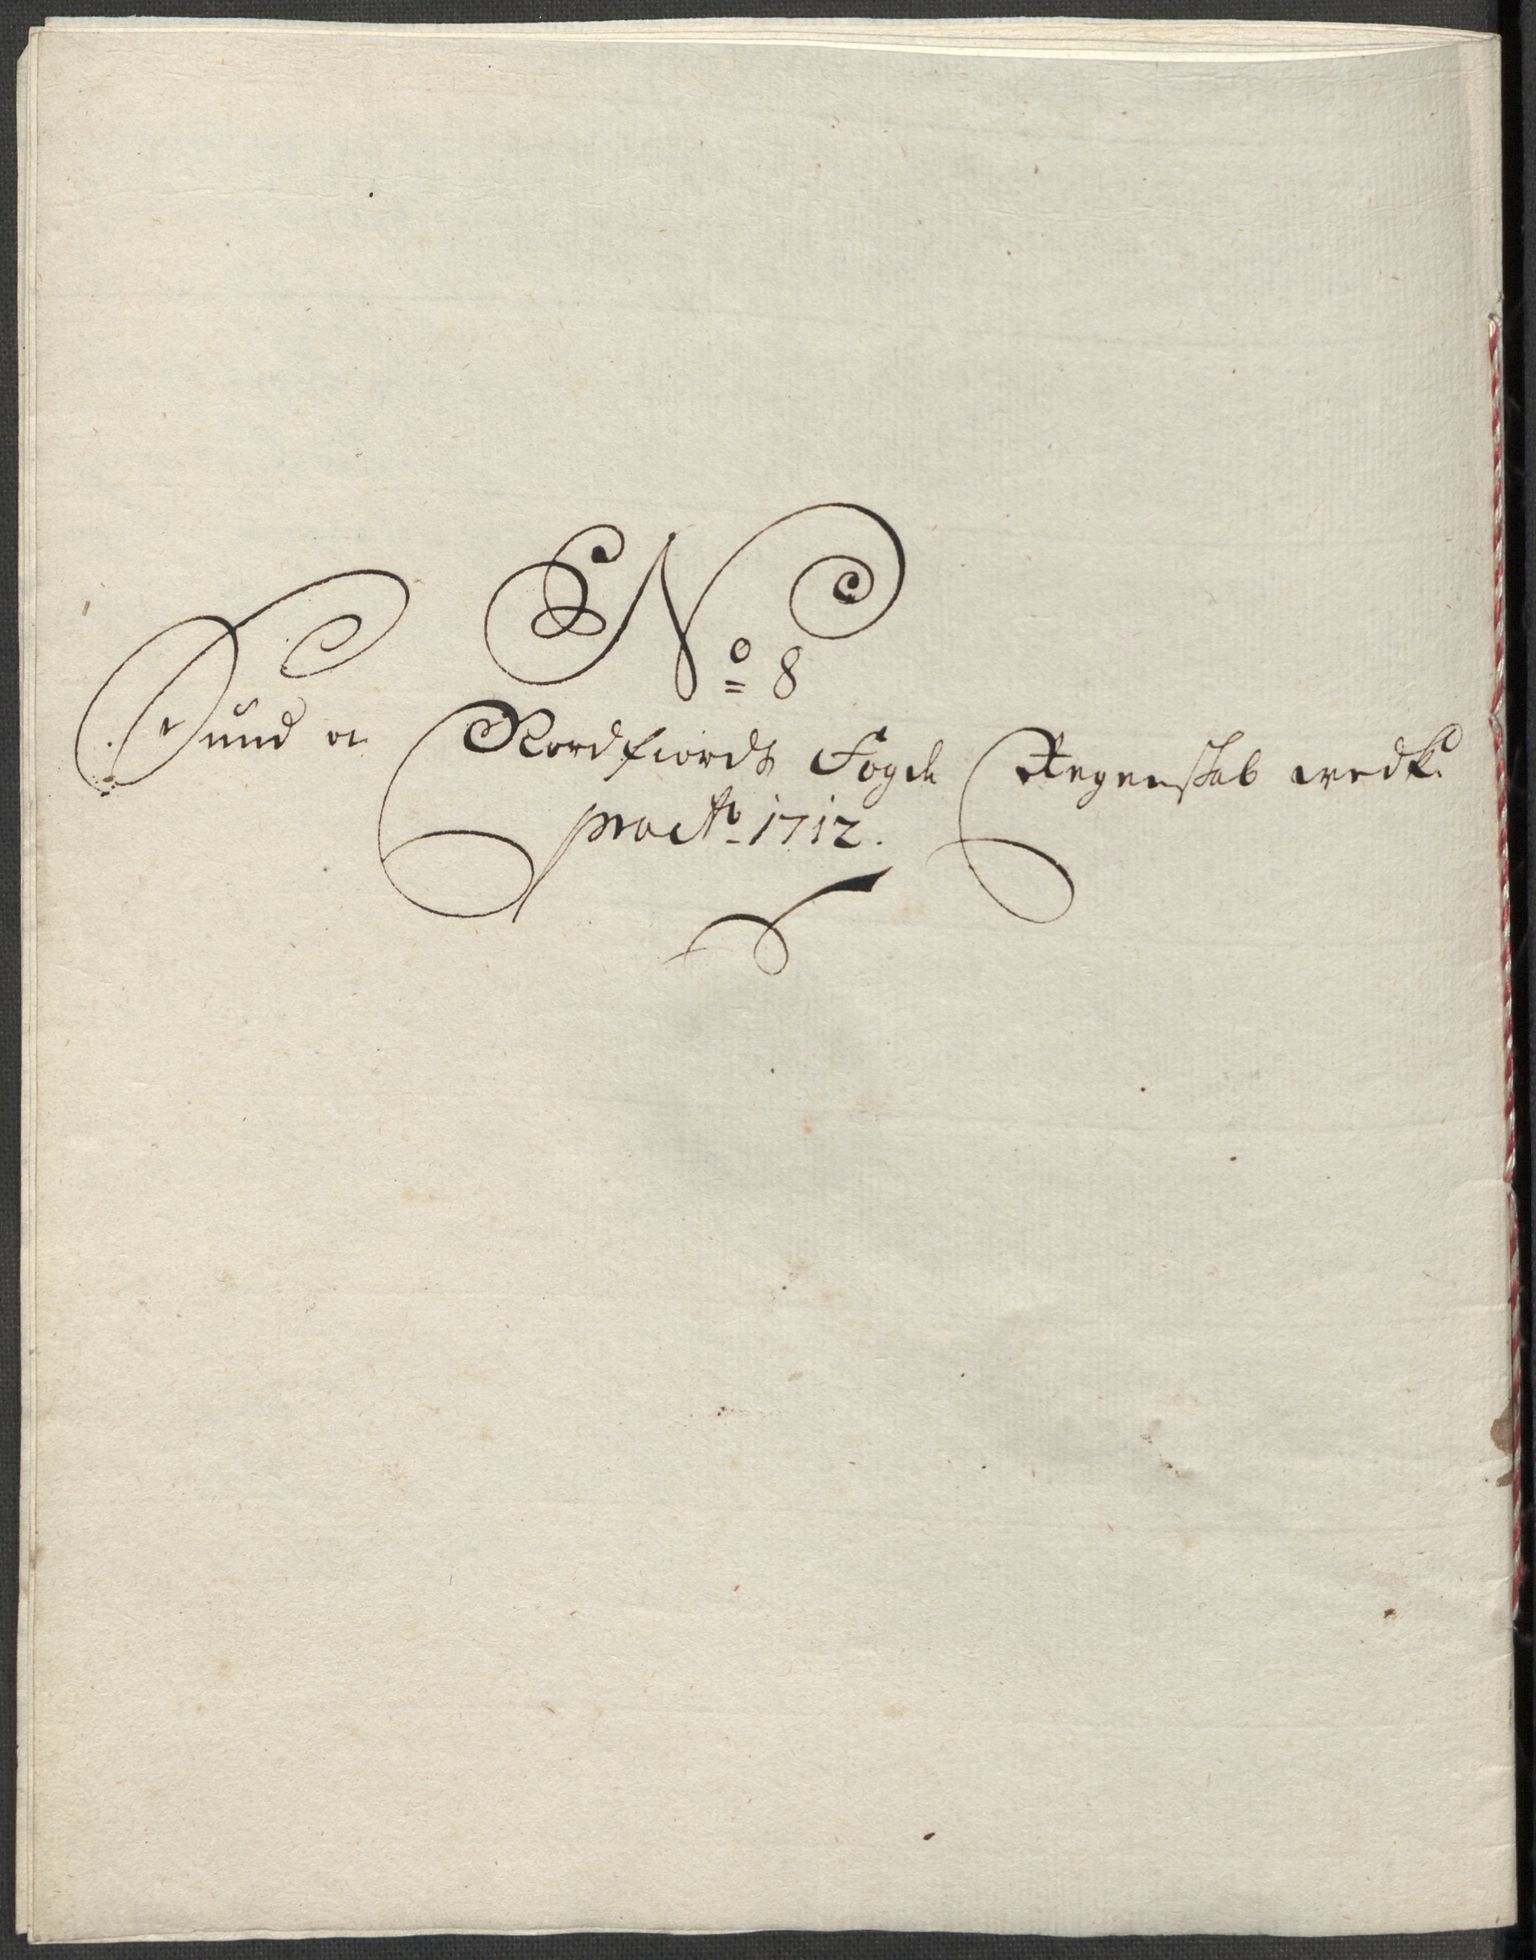 No 8
Sund og Nordfiords Fogde Regenskab vedk:
pro Ao 1712.